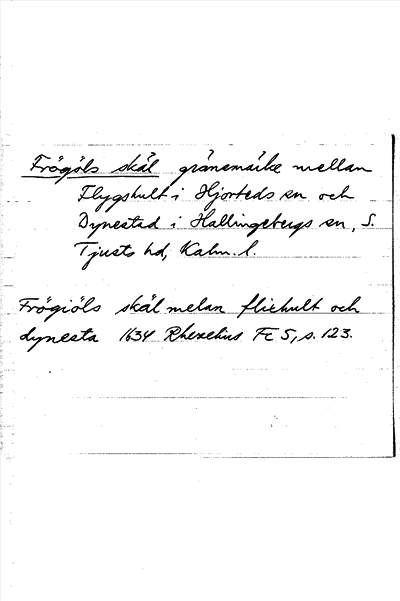 Frögöls skäl gränsmärke mellan
Flygshult i Hjorteds sn och
Dynestad i Hallingebergs sn, S.
Tjusts hd, Kalm. l.
Frögiöls skäl melan fliehult och
dynesta 1634 Rhezelius Fc 5, s. 123.